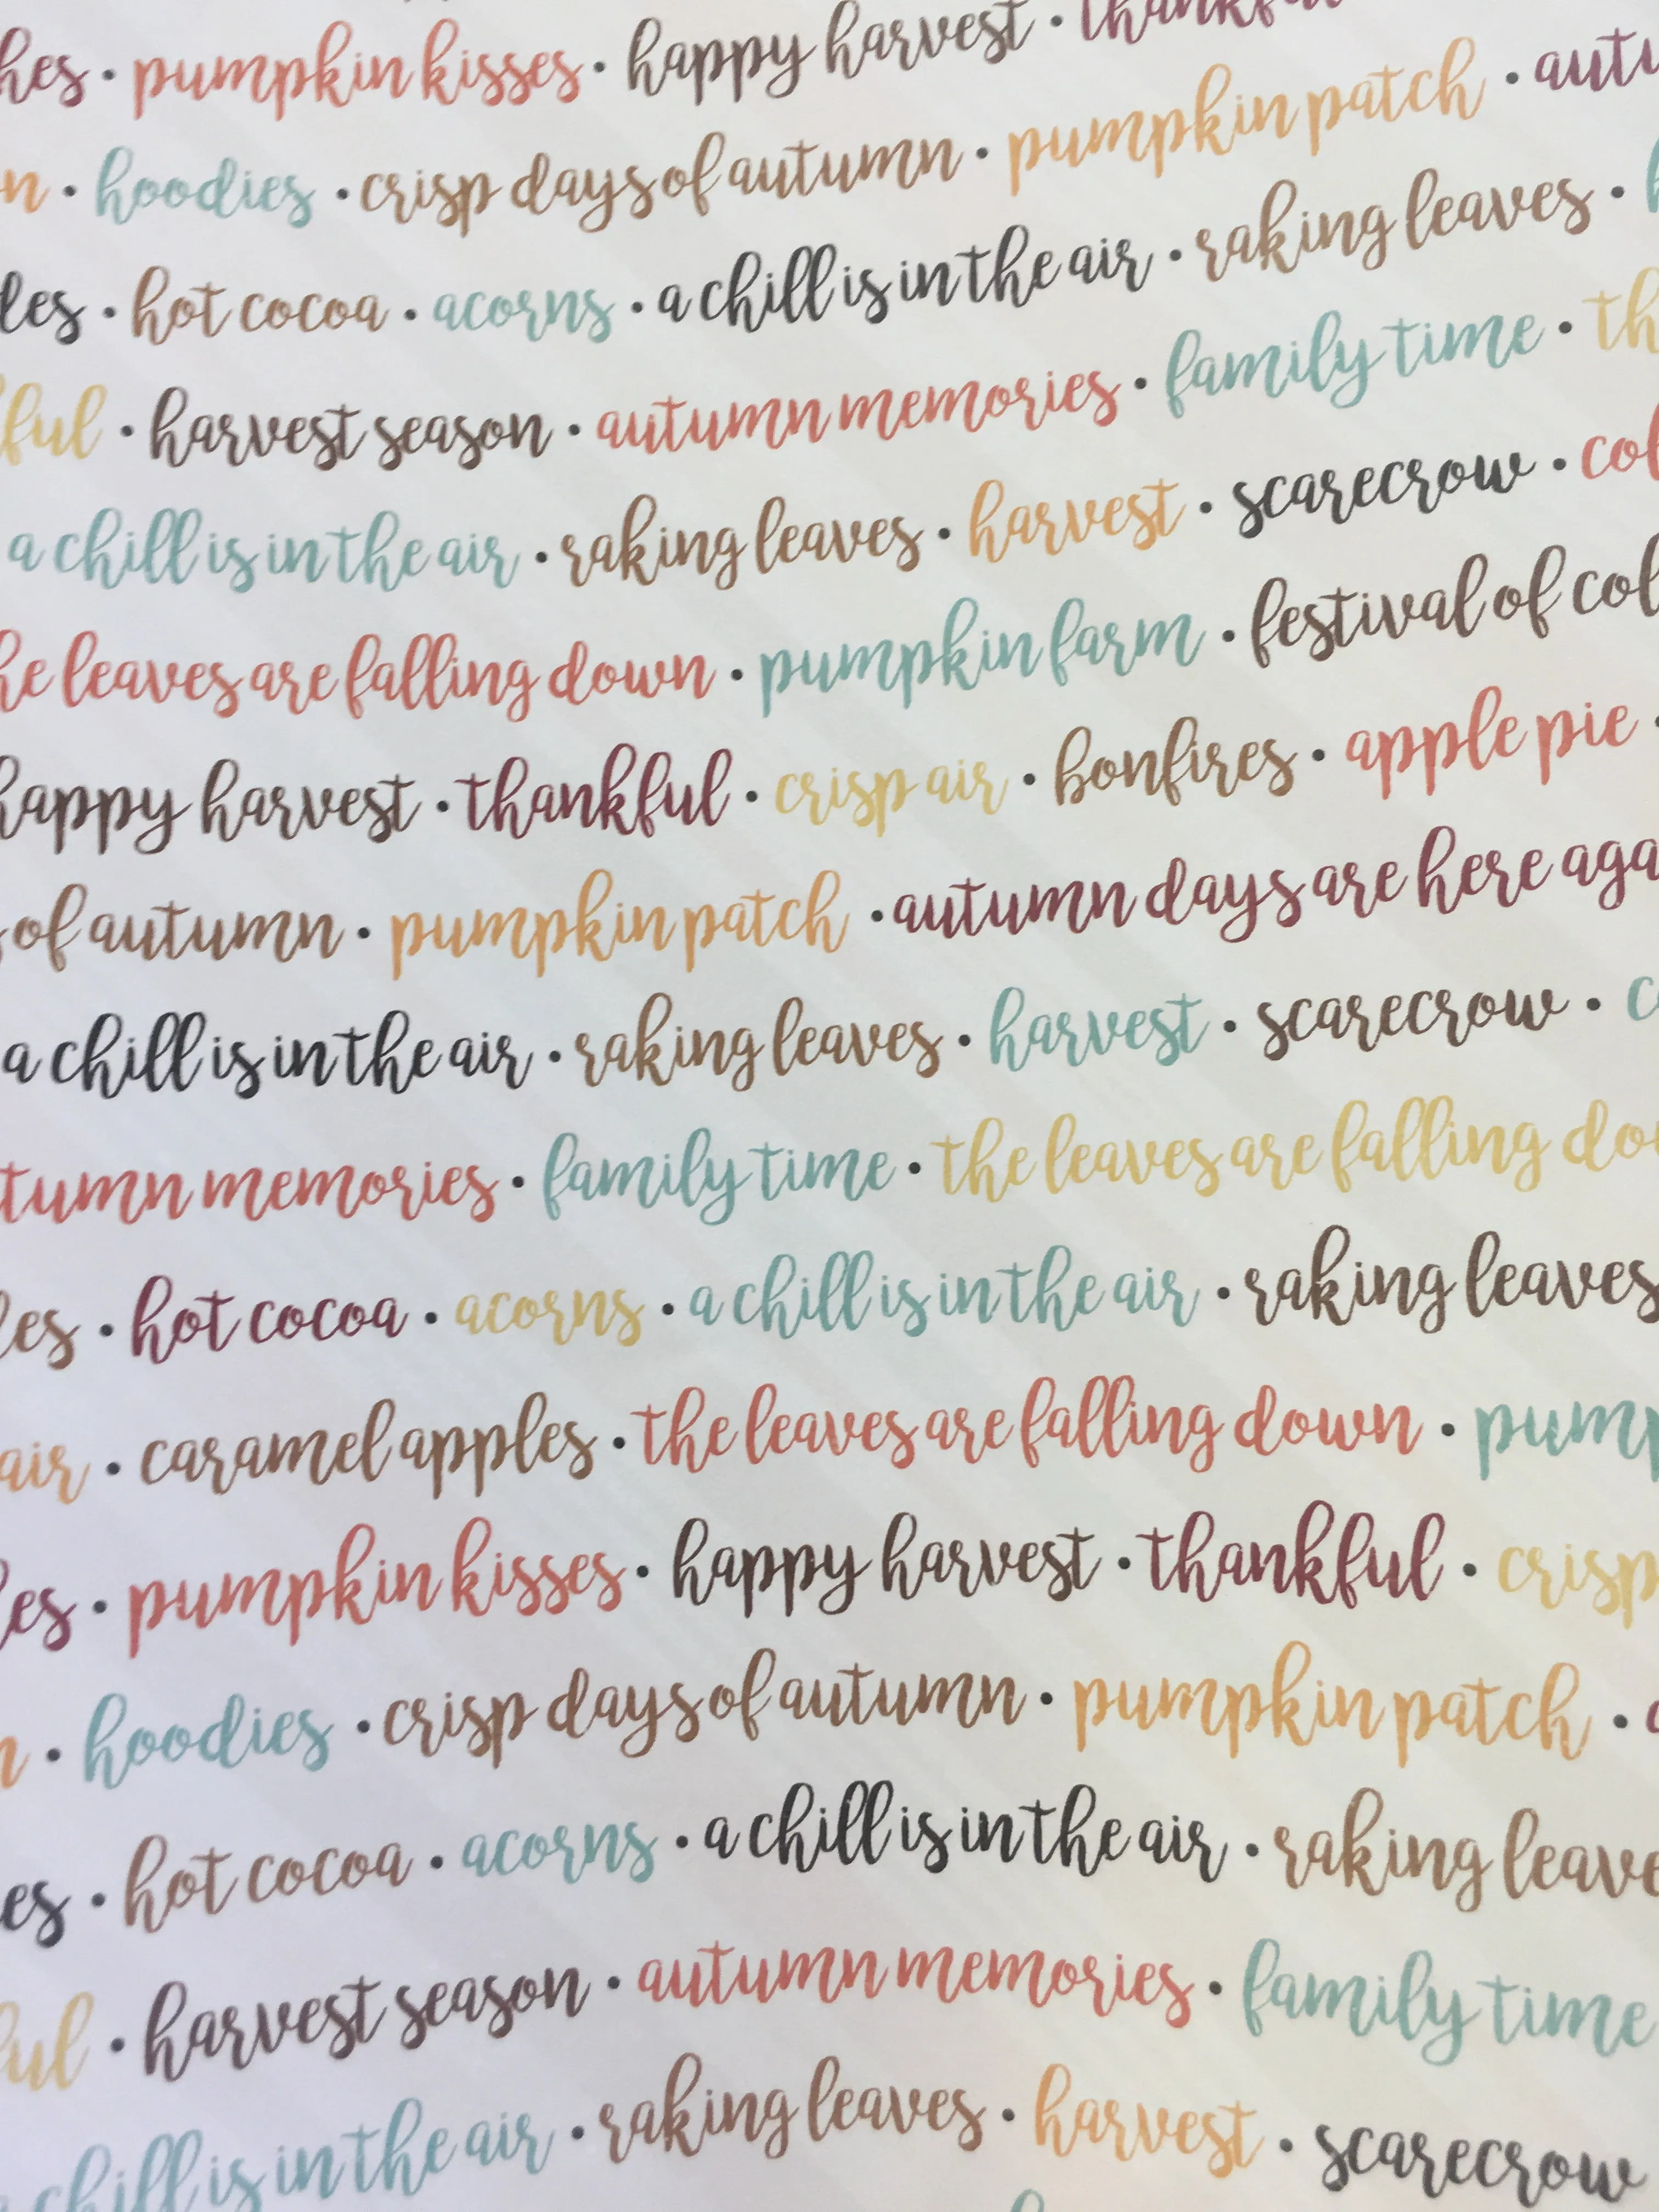 hes • pumpkin kisses • happy harvest • thankful
n • hoodies • crisp days of autumn • pumpkin patch • autu
les • hot cocoa • acorns • a chill is in the air • raking leaves •
ful • harvest season • autumn memories • family time • th
a chill is in the air • raking leaves • harvest • scarecrow • col
he leaves are falling down • pumpkin farm • festival of col
happy harvest • thankful • crisp air • bonfires • apple pie •
of autumn • pumpkin patch • autumn days are here aga
a chill is in the air • raking leaves • harvest • scarecrow • c
tumn memories • family time • the leaves are falling dow
les • hot cocoa • acorns • a chill is in the air • raking leaves
air • caramel apples • the leaves are falling down • pump
es • pumpkin kisses • happy harvest • thankful • crisp
n • hoodies • crisp days of autumn • pumpkin patch • a
es • hot cocoa • acorns • a chill is in the air • raking leave
ful • harvest season • autumn memories • family time
a chill is in the air • raking leaves • harvest • scarecrow